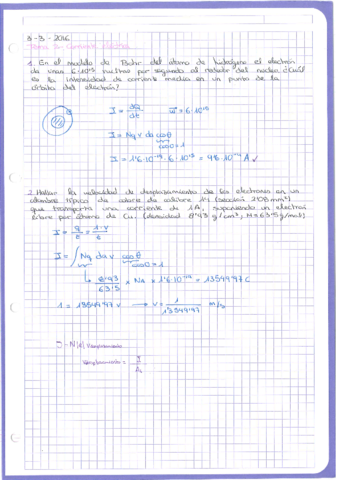 8-3-2016
Tema 5: Corriente eléctrica
1. En el modelo de Bohr del átomo de hidrógeno el electrón
da unas 6·10¹⁵ vueltas por segundo al rededor del núcleo ¿Cuál
es la intensidad de corriente media en un punto de la
órbita del electrón?
I = dQ/dt w = 6·10¹⁵
I = Nq v da cosθ
cos0 = 1
I = 1'6·10⁻¹⁹ · 6·10¹⁵ = 9'6·10⁻⁴ A ✓
2. Hallar la velocidad de desplazamiento de los electrones en un
alambre típico de cobre de calibre 14 (sección 2'08 mm²)
que transporta una corriente de 1A, suponiendo un electrón
libre por átomo de Cu. (densidad 8'93 g/cm³, M=63'5 g/mol)
I = q/t = 1·v/t
I = ∫ Nq da v cosθ
cos0 = 1
8'93/63'5 · Na · 1'6·10⁻¹⁹ = 13549'97 C
1 = 13549'97 v → v = 1/13549'97 m/s
J = N|e| v desplazamiento